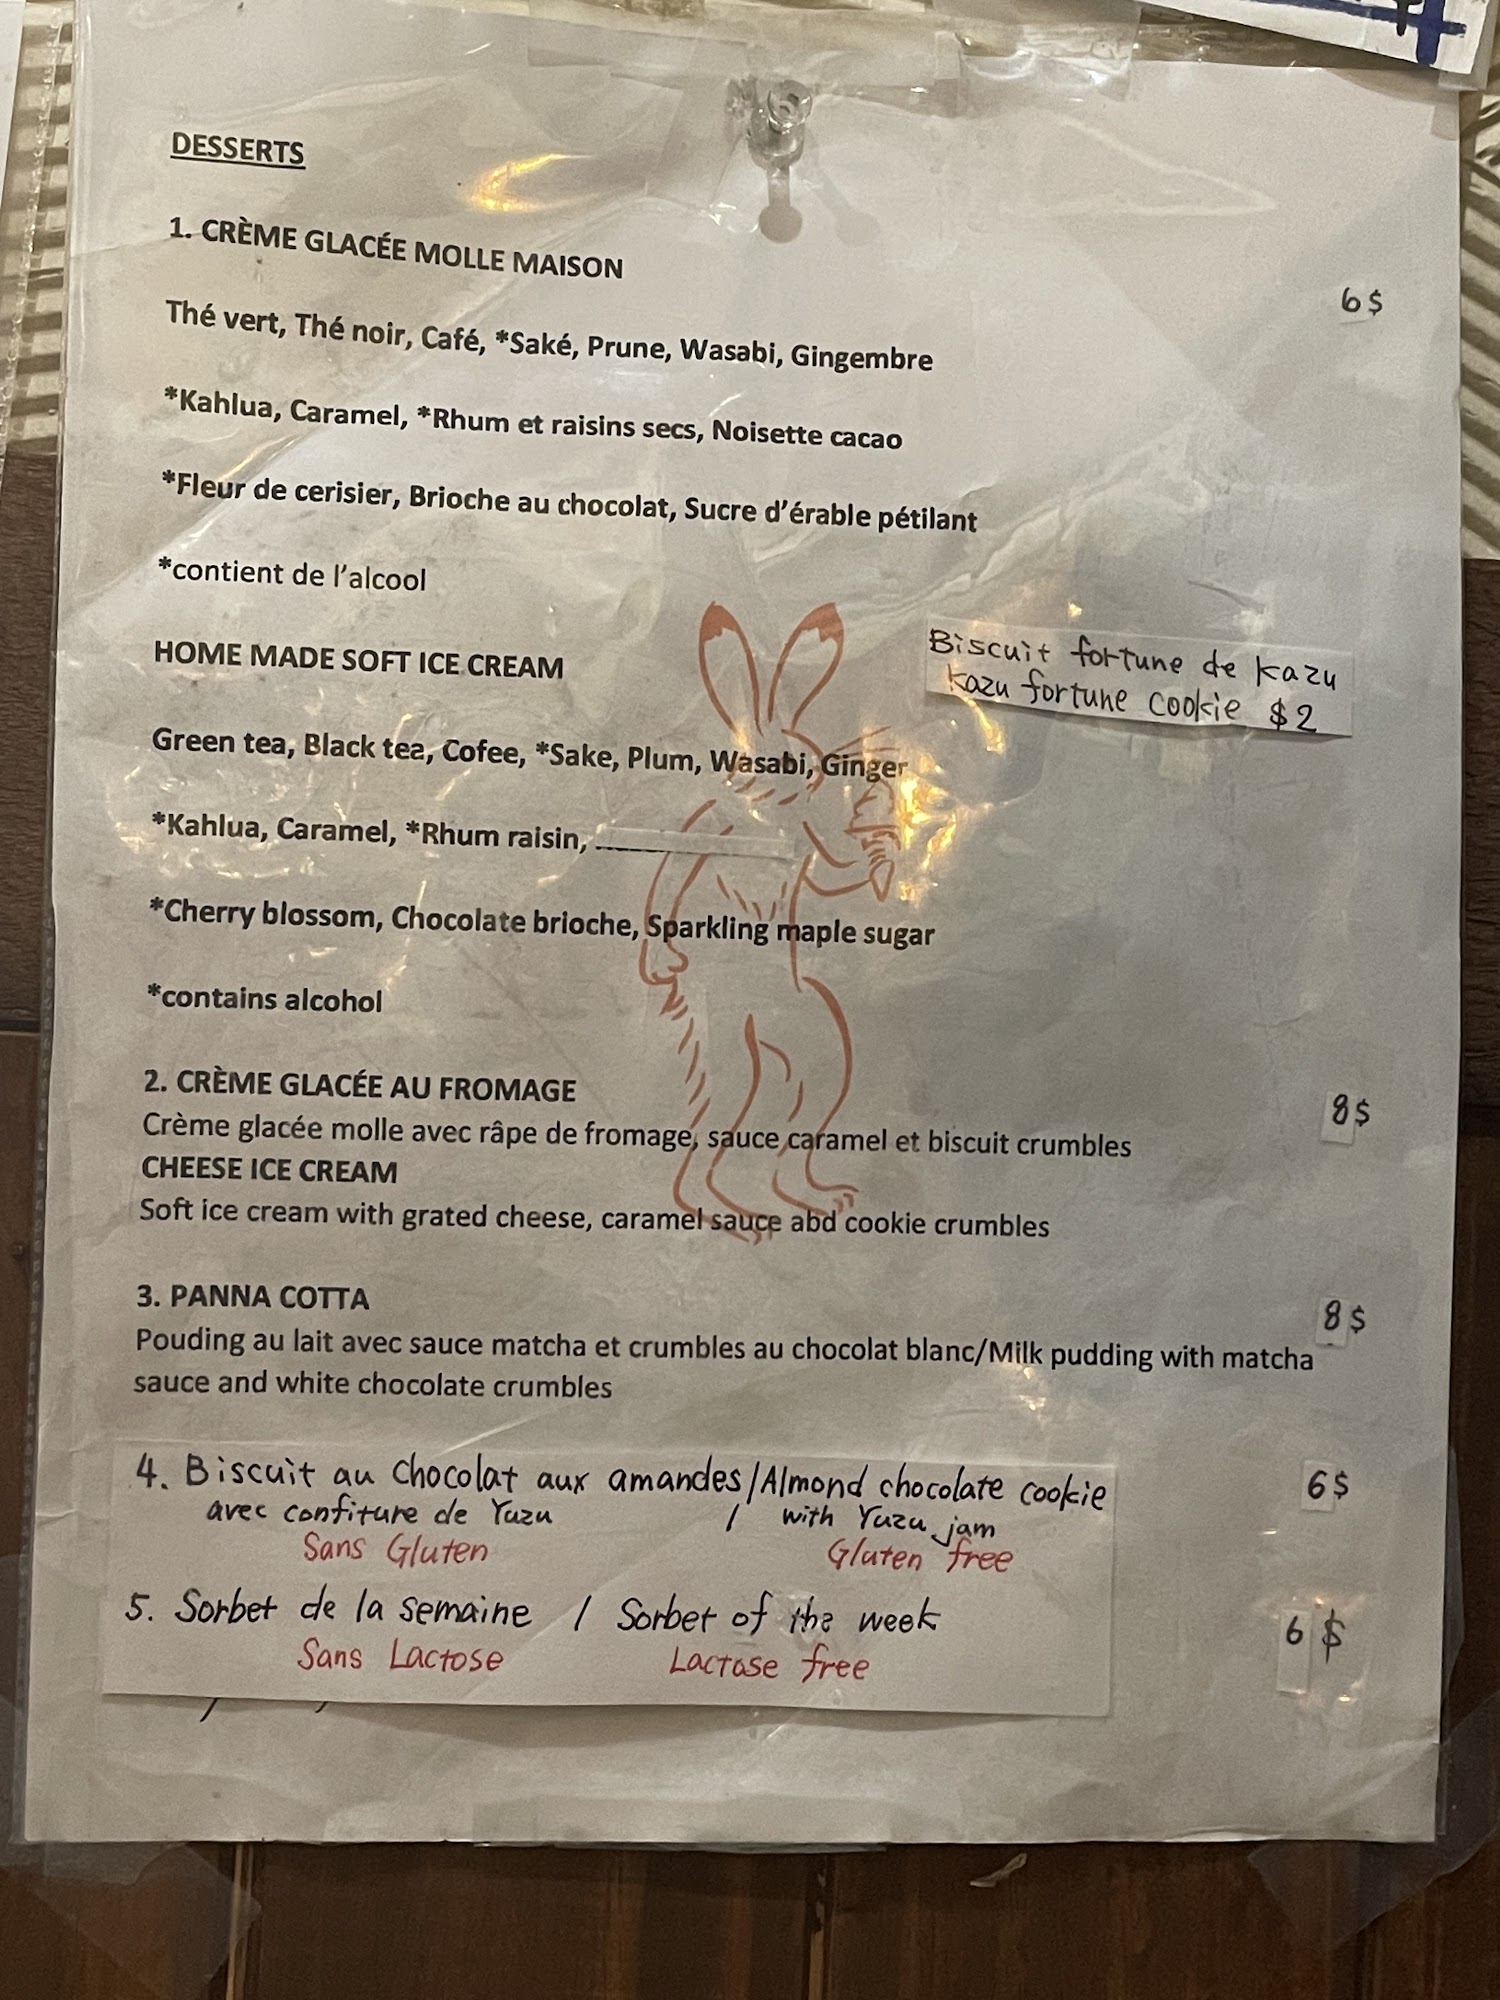 DESSERTS
1. CRÈME GLACÉE MOLLE MAISON
6$
Thé vert, Thé noir, Café, *Saké, Prune, Wasabi, Gingembre
*Kahlua, Caramel, *Rhum et raisins secs, Noisette cacao
*Fleur de cerisier, Brioche au chocolat, Sucre d'érable pétilant
*contient de l'alcool
HOME MADE SOFT ICE CREAM
Biscuit fortune de Kazu
Kazu fortune cookie $2
Green tea, Black tea, Cofee, *Sake, Plum, Wasabi, Ginger
*Kahlua, Caramel, *Rhum raisin,
*Cherry blossom, Chocolate brioche, Sparkling maple sugar
*contains alcohol
2. CRÈME GLACÉE AU FROMAGE
8$
Crème glacée molle avec râpe de fromage, sauce caramel et biscuit crumbles
CHEESE ICE CREAM
Soft ice cream with grated cheese, caramel sauce abd cookie crumbles
3. PANNA COTTA
8$
Pouding au lait avec sauce matcha et crumbles au chocolat blanc/Milk pudding with matcha
sauce and white chocolate crumbles
4. Biscuit au chocolat aux amandes/Almond chocolate cookie
6$
avec confiture de Yuzu / with Yuzu jam
Sans Gluten Gluten free
5. Sorbet de la semaine / Sorbet of the week
6$
Sans Lactose Lactose free